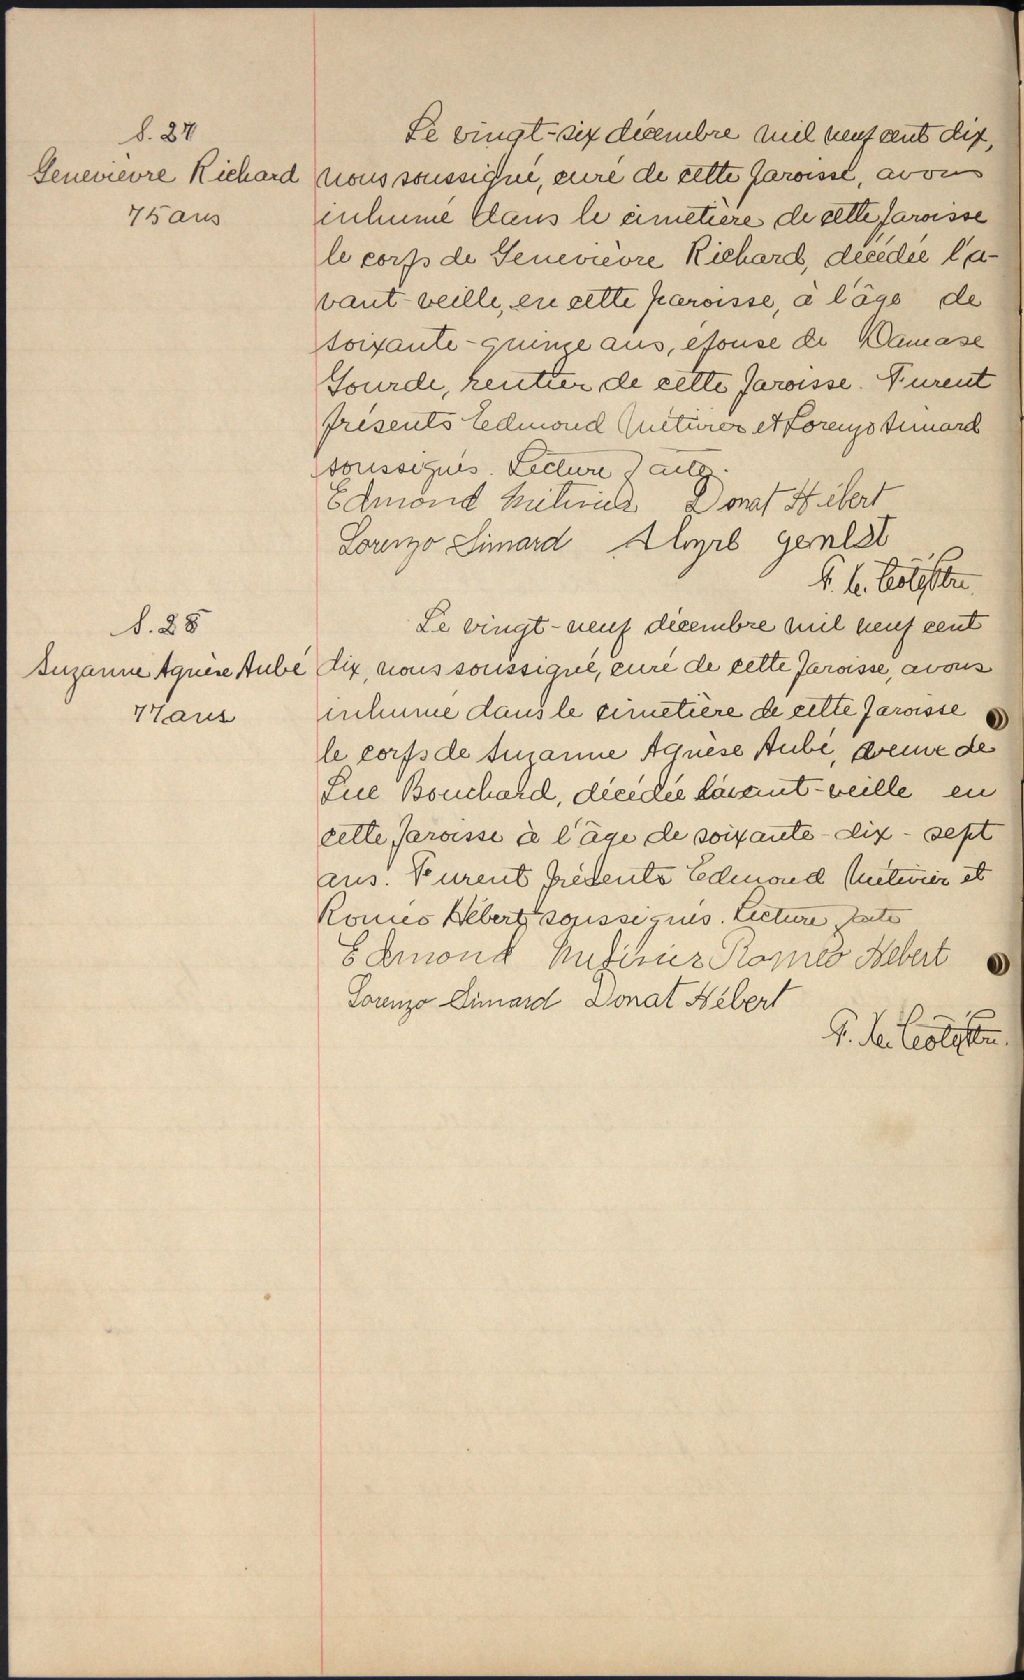 S. 27
Genevièvre Richard
75 ans
Le vingt-six décembre mil neuf cent dix,
nous soussigné, curé de cette paroisse, avons
inhumé dans le cimetière de cette paroisse
le corps de Genevièvre Richard, décédée l'a-
vant-veille, en cette paroisse, à l'âge de
soixante-quinze ans, épouse de Damase
Gourde, rentier de cette paroisse. Furent
présents Edmond Métivier et Lorenzo Simard
soussignés. Lecture faite.
Edmond Métivier Donat Hébert
Lorenzo Simard genest
F. X. Côté, Ptre.
S. 28
Suzanne Agnèse Aubé
77 ans
Le vingt-neuf décembre mil neuf cent
dix, nous soussigné, curé de cette paroisse, avons
inhumé dans le cimetière de cette paroisse
le corps de Suzanne Agnèse Aubé, veuve de
Luc Bouchard, décédée l'avant-veille en
cette paroisse à l'âge de soixante-dix-sept
ans. Furent présents Edmond Métivier et
Roméo Hébert soussignés. Lecture faite
Edmond Métivier Roméo Hebert
Lorenzo Simard Donat Hébert
F. X. Côté, Ptre.